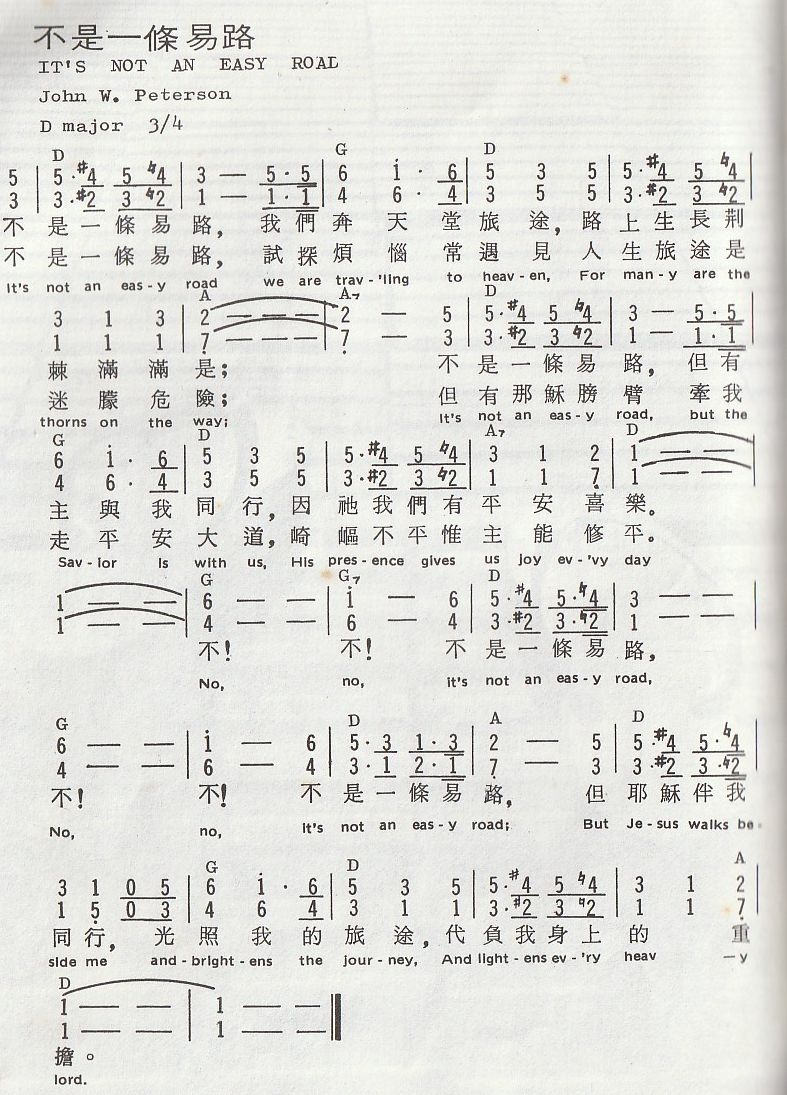 不是一條易路
IT'S NOT AN EASY ROAD
John W. Peterson
D major 3/4
D G D
5 | 5·#4 5♮4 | 3 — 5·5 | 6 i· 6 | 5 3 5 | 5·#4 5♮4 |
3 | 3·#2 3♮2 | 1 — 1·1 | 4 6· 4 | 3 5 5 | 3·#2 3♮2 |
不 是一條易 路, 我們奔 天 堂 旅 途, 路 上生長荆
不 是一條易 路, 試探煩 惱 常 遇 見 人 生旅途是
It's not an eas-y road we are trav-'ling to heav-en, For man-y are the
A A7 D
3 1 3 | 2 — — | 2 — 5 | 5·#4 5♮4 | 3 — 5·5 |
1 1 1 | 7̣ — — | 7̣ — 3 | 3·#2 3♮2 | 1 — 1·1 |
棘 滿 滿 是; 不 是一條易 路, 但有
迷 朦 危 險; 但 有那穌膀 臂 牽我
thorns on the way; It's not an eas-y road, but the
G D A7 D
6 i· 6 | 5 3 5 | 5·#4 5♮4 | 3 1 2 | 1 — — |
4 6· 4 | 3 5 5 | 3·#2 3♮2 | 1 1 7̣ | 1 — — |
主 與 我 同 行, 因 祂我們有 平 安 喜 樂。
走 平 安 大 道, 崎 嶇不平惟 主 能 修 平。
Sav-ior is with us, His pres-ence gives us joy ev-'vy day
G G7 D
1 — — | 6 — — | i — 6 | 5·#4 5·♮4 | 3 — — |
1 — — | 4 — — | 6 — 4 | 3·#2 3·♮2 | 1 — — |
不! 不! 不 是一條易 路,
No, no, it's not an eas-y road,
G D A D
6 — — | i — 6 | 5·3 1·3 | 2 — 5 | 5·#4 5·♮4 |
4 — — | 6 — 4 | 3·1 2·1 | 7̣ — 3 | 3·#2 3·♮2 |
不! 不! 不 是一條易 路, 但 耶穌伴我
No, no, It's not an eas-y road; But Je-sus walks be-
G D A
3 1 0 5 | 6 i· 6 | 5 3 5 | 5·#4 5♮4 | 3 1 2 |
1 5̣ 0 3 | 4 6 4 | 3 1 1 | 3·#2 3♮2 | 1 1 7̣ |
同 行, 光 照 我 的 旅 途, 代 負我身上 的 重
side me and-bright-ens the jour-ney, And light-ens ev-'ry heav —y
D
1 — — | 1 — — ‖
1 — — | 1 — — ‖
擔。
lord.